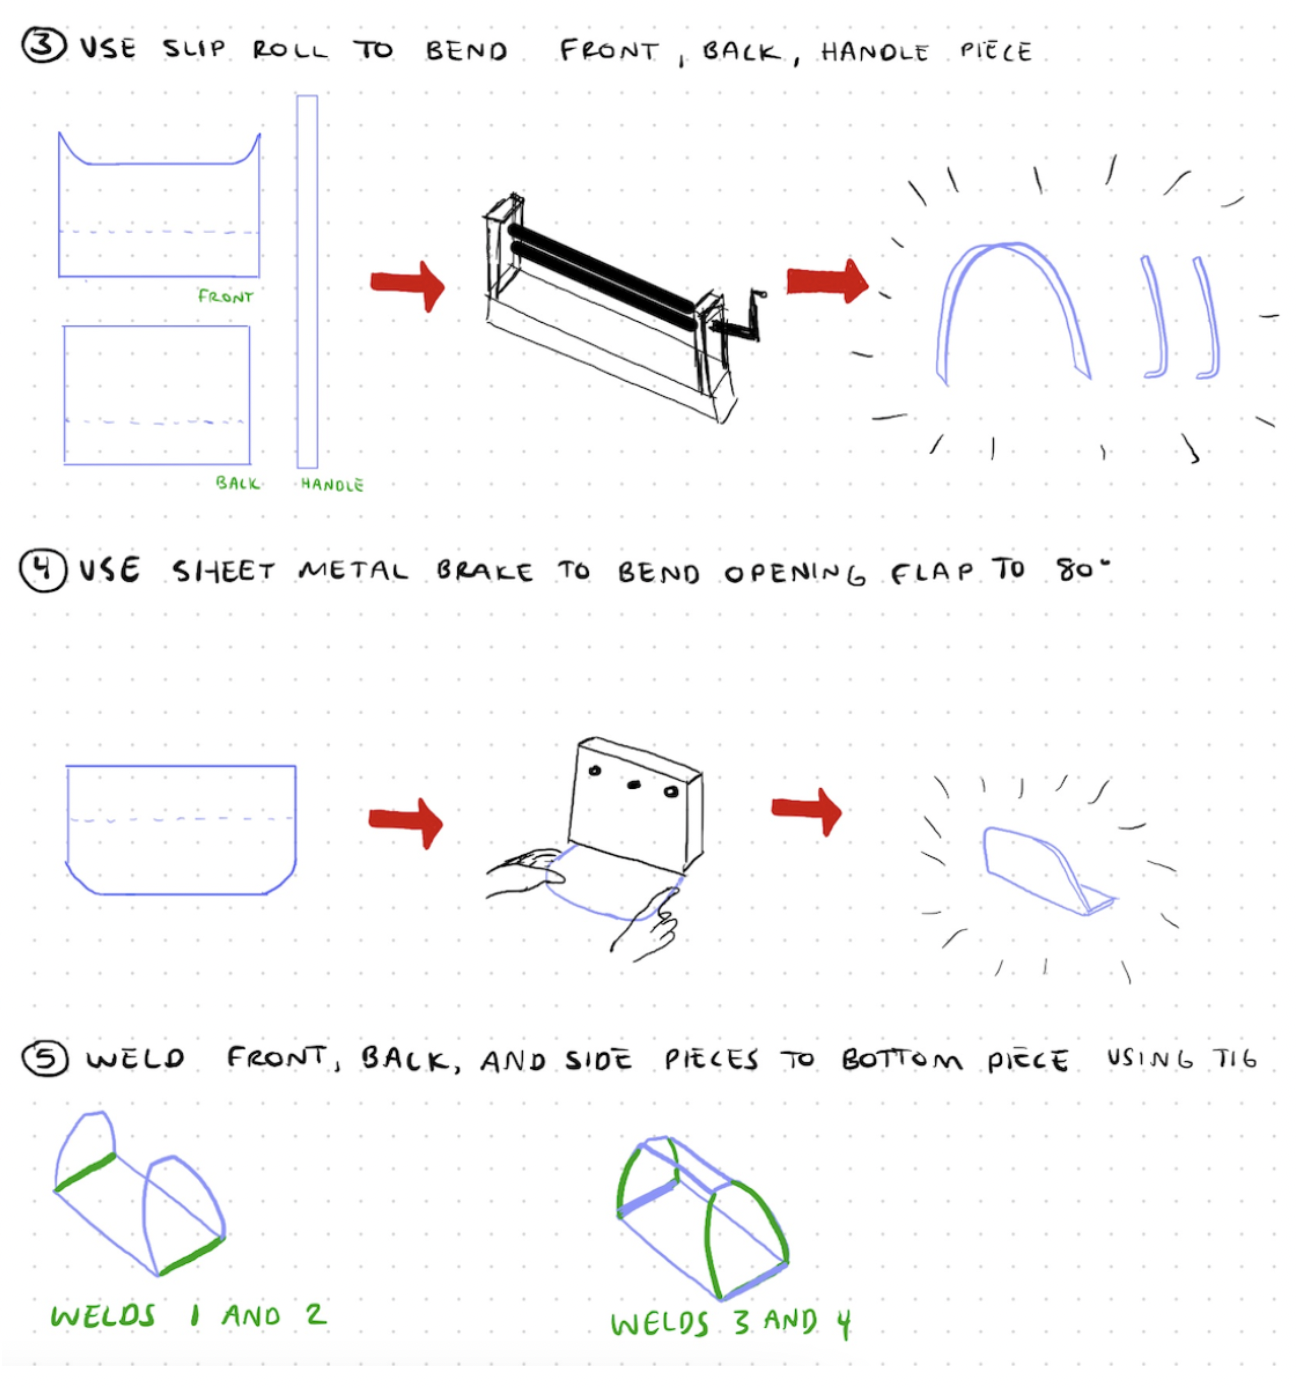 ③ USE SLIP ROLL TO BEND FRONT, BACK, HANDLE PIECE
FRONT
BACK
HANDLE
④ USE SHEET METAL BRAKE TO BEND OPENING FLAP TO 80°
⑤ WELD FRONT, BACK, AND SIDE PIECES TO BOTTOM PIECE USING TIG
WELDS 1 AND 2
WELDS 3 AND 4